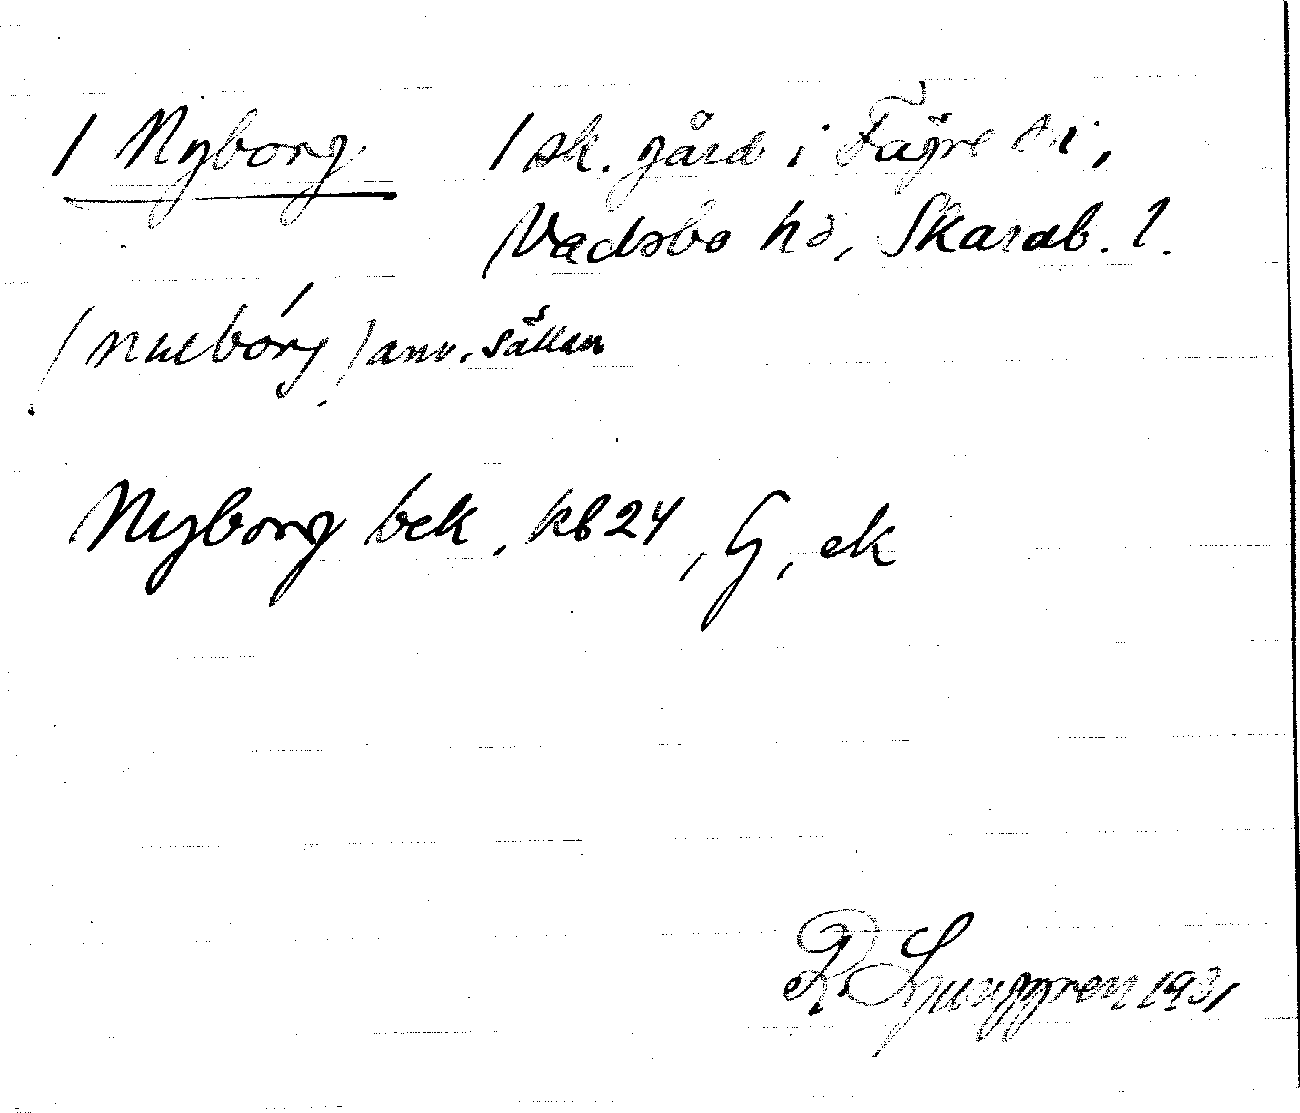 / Nyborg / sk. gård i Fägre sn,
Vadsbo hd, Skarab. l.
/ nueborg / anv. sällan
Nyborg bek, kb 24, G, ek
R. Ljunggren 1931